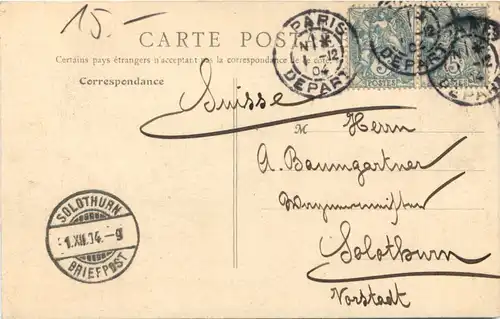 15.-
CARTE POSTALE
Certains pays étrangers n'acceptent pas la correspondance de ce côté
Correspondance
PARIS
DEPART
04
5
POSTES
Suisse
M Herrn
A. Baumgartner
Solothurn
Vorstadt
SOLOTHURN
1.XII.04.-9
BRIEFPOST